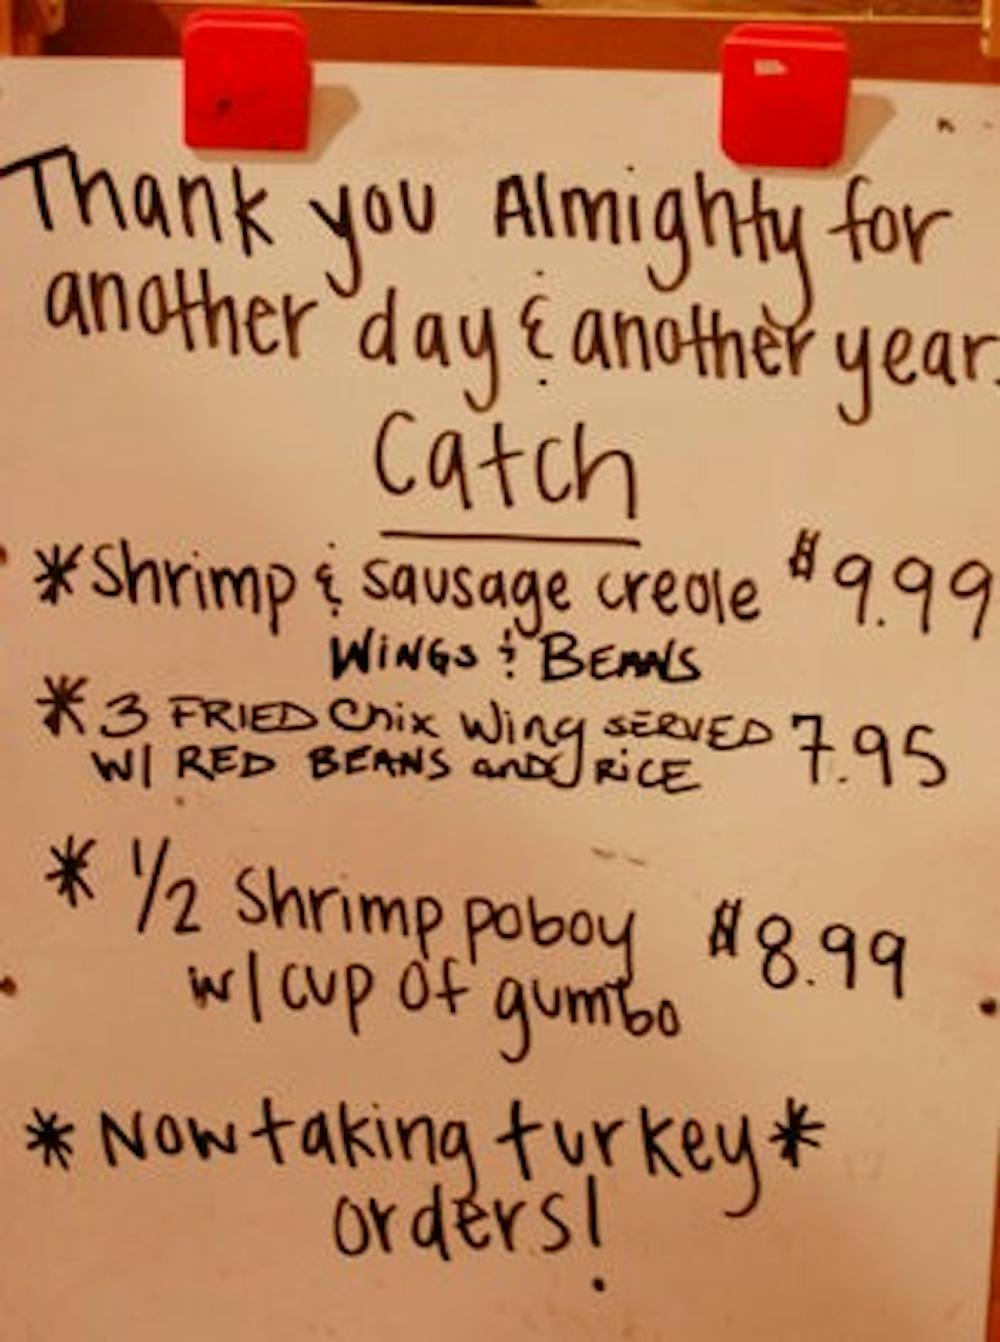 Thank you Almighty for
another day & another year.
Catch
*Shrimp & sausage creole $9.99
WINGS & BEANS
*3 FRIED Chix Wing SERVED 7.95
W/ RED BEANS and RICE
* 1/2 Shrimp poboy $8.99
w/ cup of gumbo
* Now taking turkey *
orders!